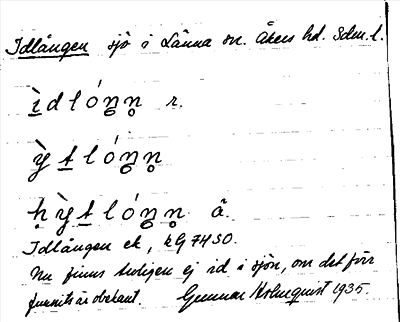 Idlången sjö i Länna sn. Åkers hd. Sdm.l.
ìdlóŋ̥ŋ̥ r.
ỳtlóŋ̥ŋ̥
hỳtlóŋ̥ŋ̥ å.
Idlången ek, kG 74 SO.
Nu finns troligen ej id i sjön, om det förr
funnits är obekant. Gunnar Holmquist 1935.